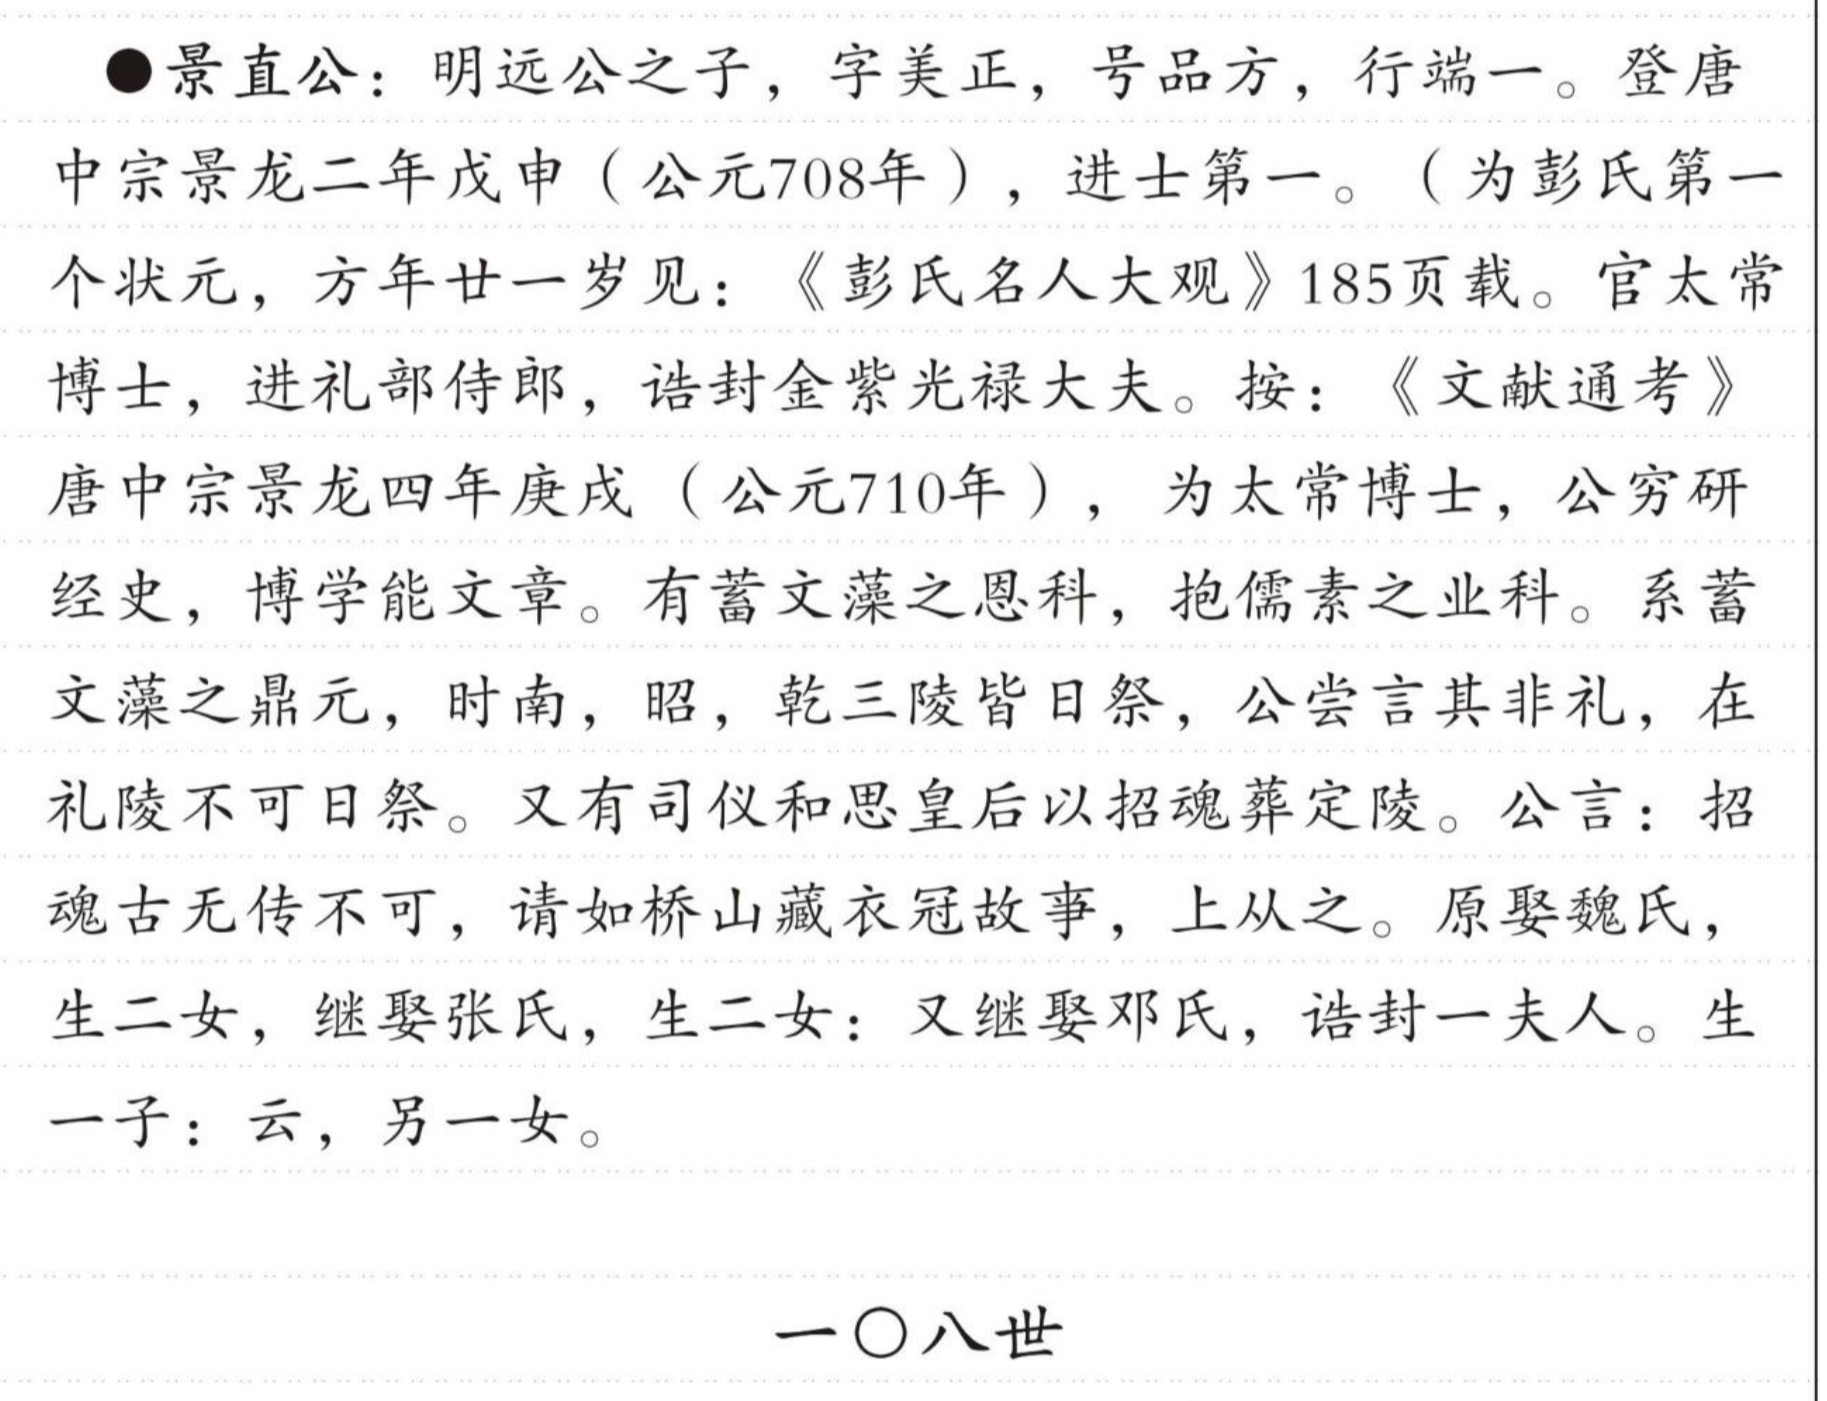 ●景直公：明远公之子，字美正，号品方，行端一。登唐
中宗景龙二年戊申（公元708年），进士第一。（为彭氏第一
个状元，方年廿一岁见：《彭氏名人大观》185页载。官太常
博士，进礼部侍郎，诰封金紫光禄大夫。按：《文献通考》
唐中宗景龙四年庚戌（公元710年），为太常博士，公穷研
经史，博学能文章。有蓄文藻之恩科，抱儒素之业科。系蓄
文藻之鼎元，时南，昭，乾三陵皆日祭，公尝言其非礼，在
礼陵不可日祭。又有司仪和思皇后以招魂葬定陵。公言：招
魂古无传不可，请如桥山藏衣冠故事，上从之。原娶魏氏，
生二女，继娶张氏，生二女：又继娶邓氏，诰封一夫人。生
一子：云，另一女。
一〇八世